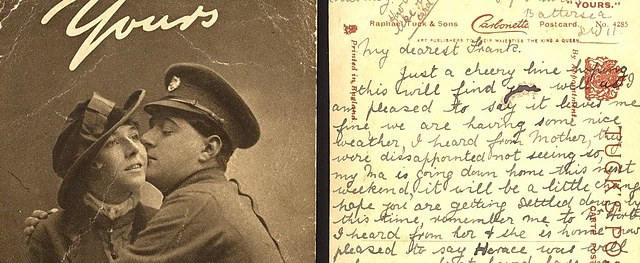 Yours
"YOURS."
Battersea
S.W.11.
Raphael Tuck & Sons Carbonette Postcard. No. 4285
ART PUBLISHERS TO THEIR MAJESTIES THE KING & QUEEN
Printed in England.
My dearest Frank.
Just a cheery line hoping
this will find you well as I
am pleased to say it leaves me
fine we are having some nice
weather, I heard from Mother, they
were disappointed not seeing so
my Ma is going down home this next
weekend, it will be a little change
hope you are getting settled down by
this time, remember me to
I heard from her & she is home now
pleased to say Horace was well
TUCK'S PO
CARTE POS